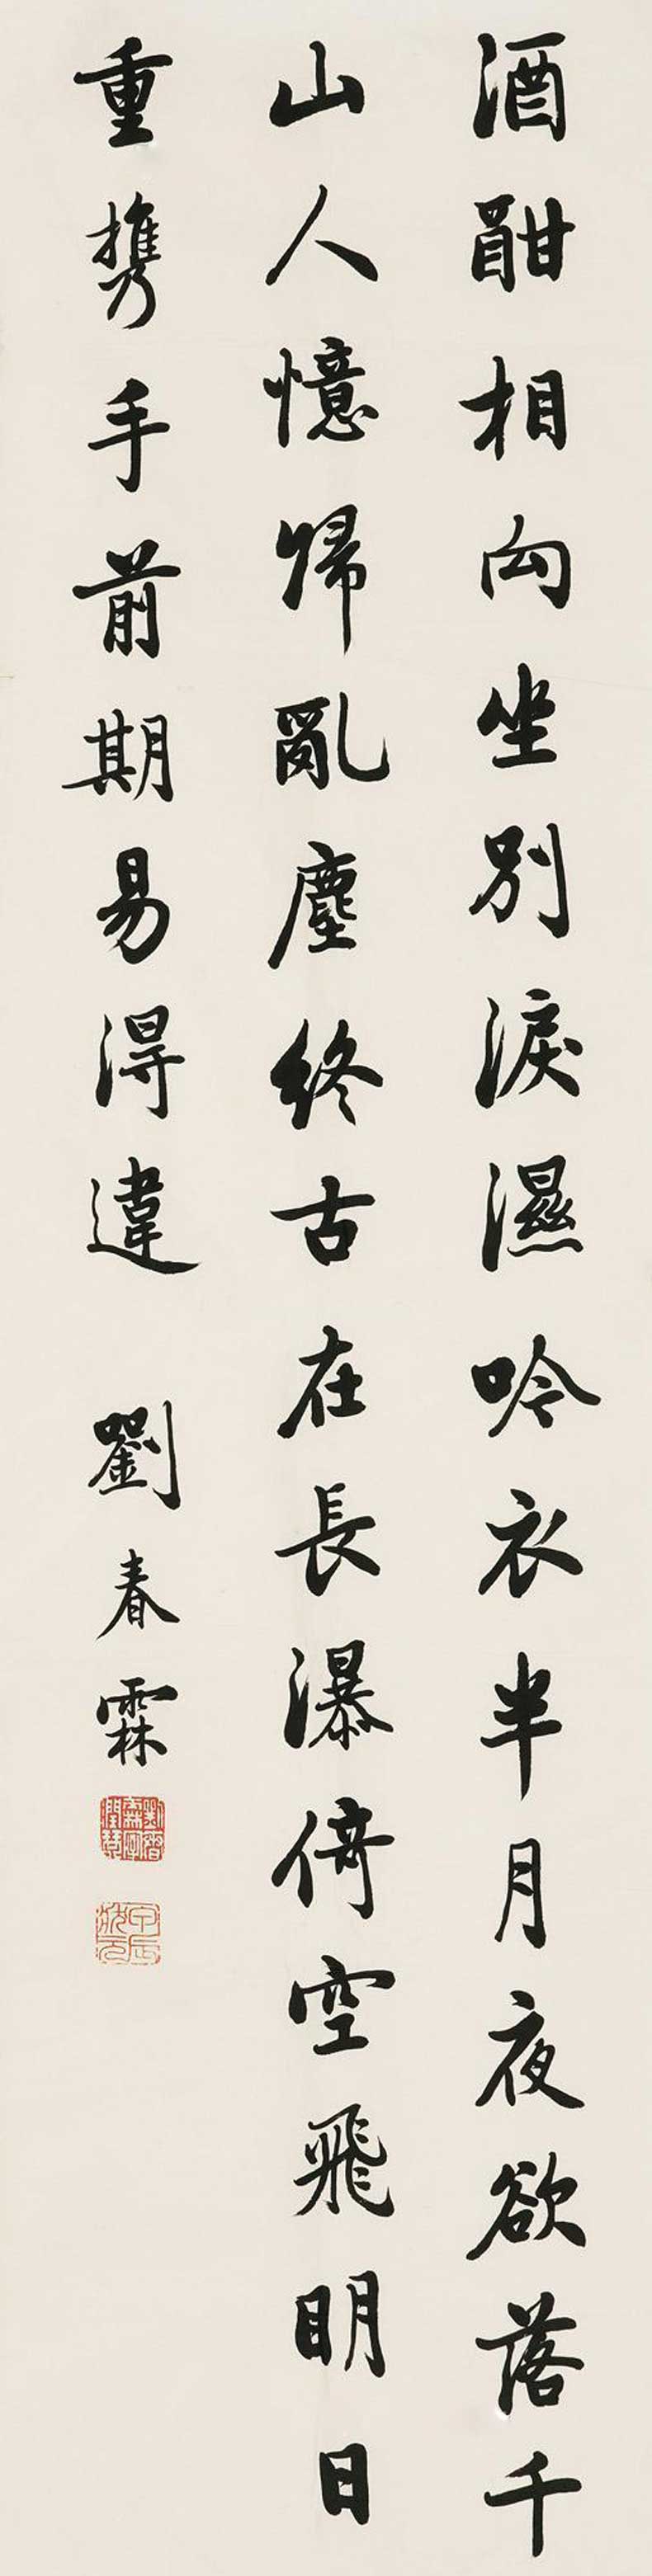 酒酣相向坐別淚濕吟衣半月夜欲落千
山人憶歸亂塵終古在長瀑倚空飛明日
重攜手前期易得違 劉春霖